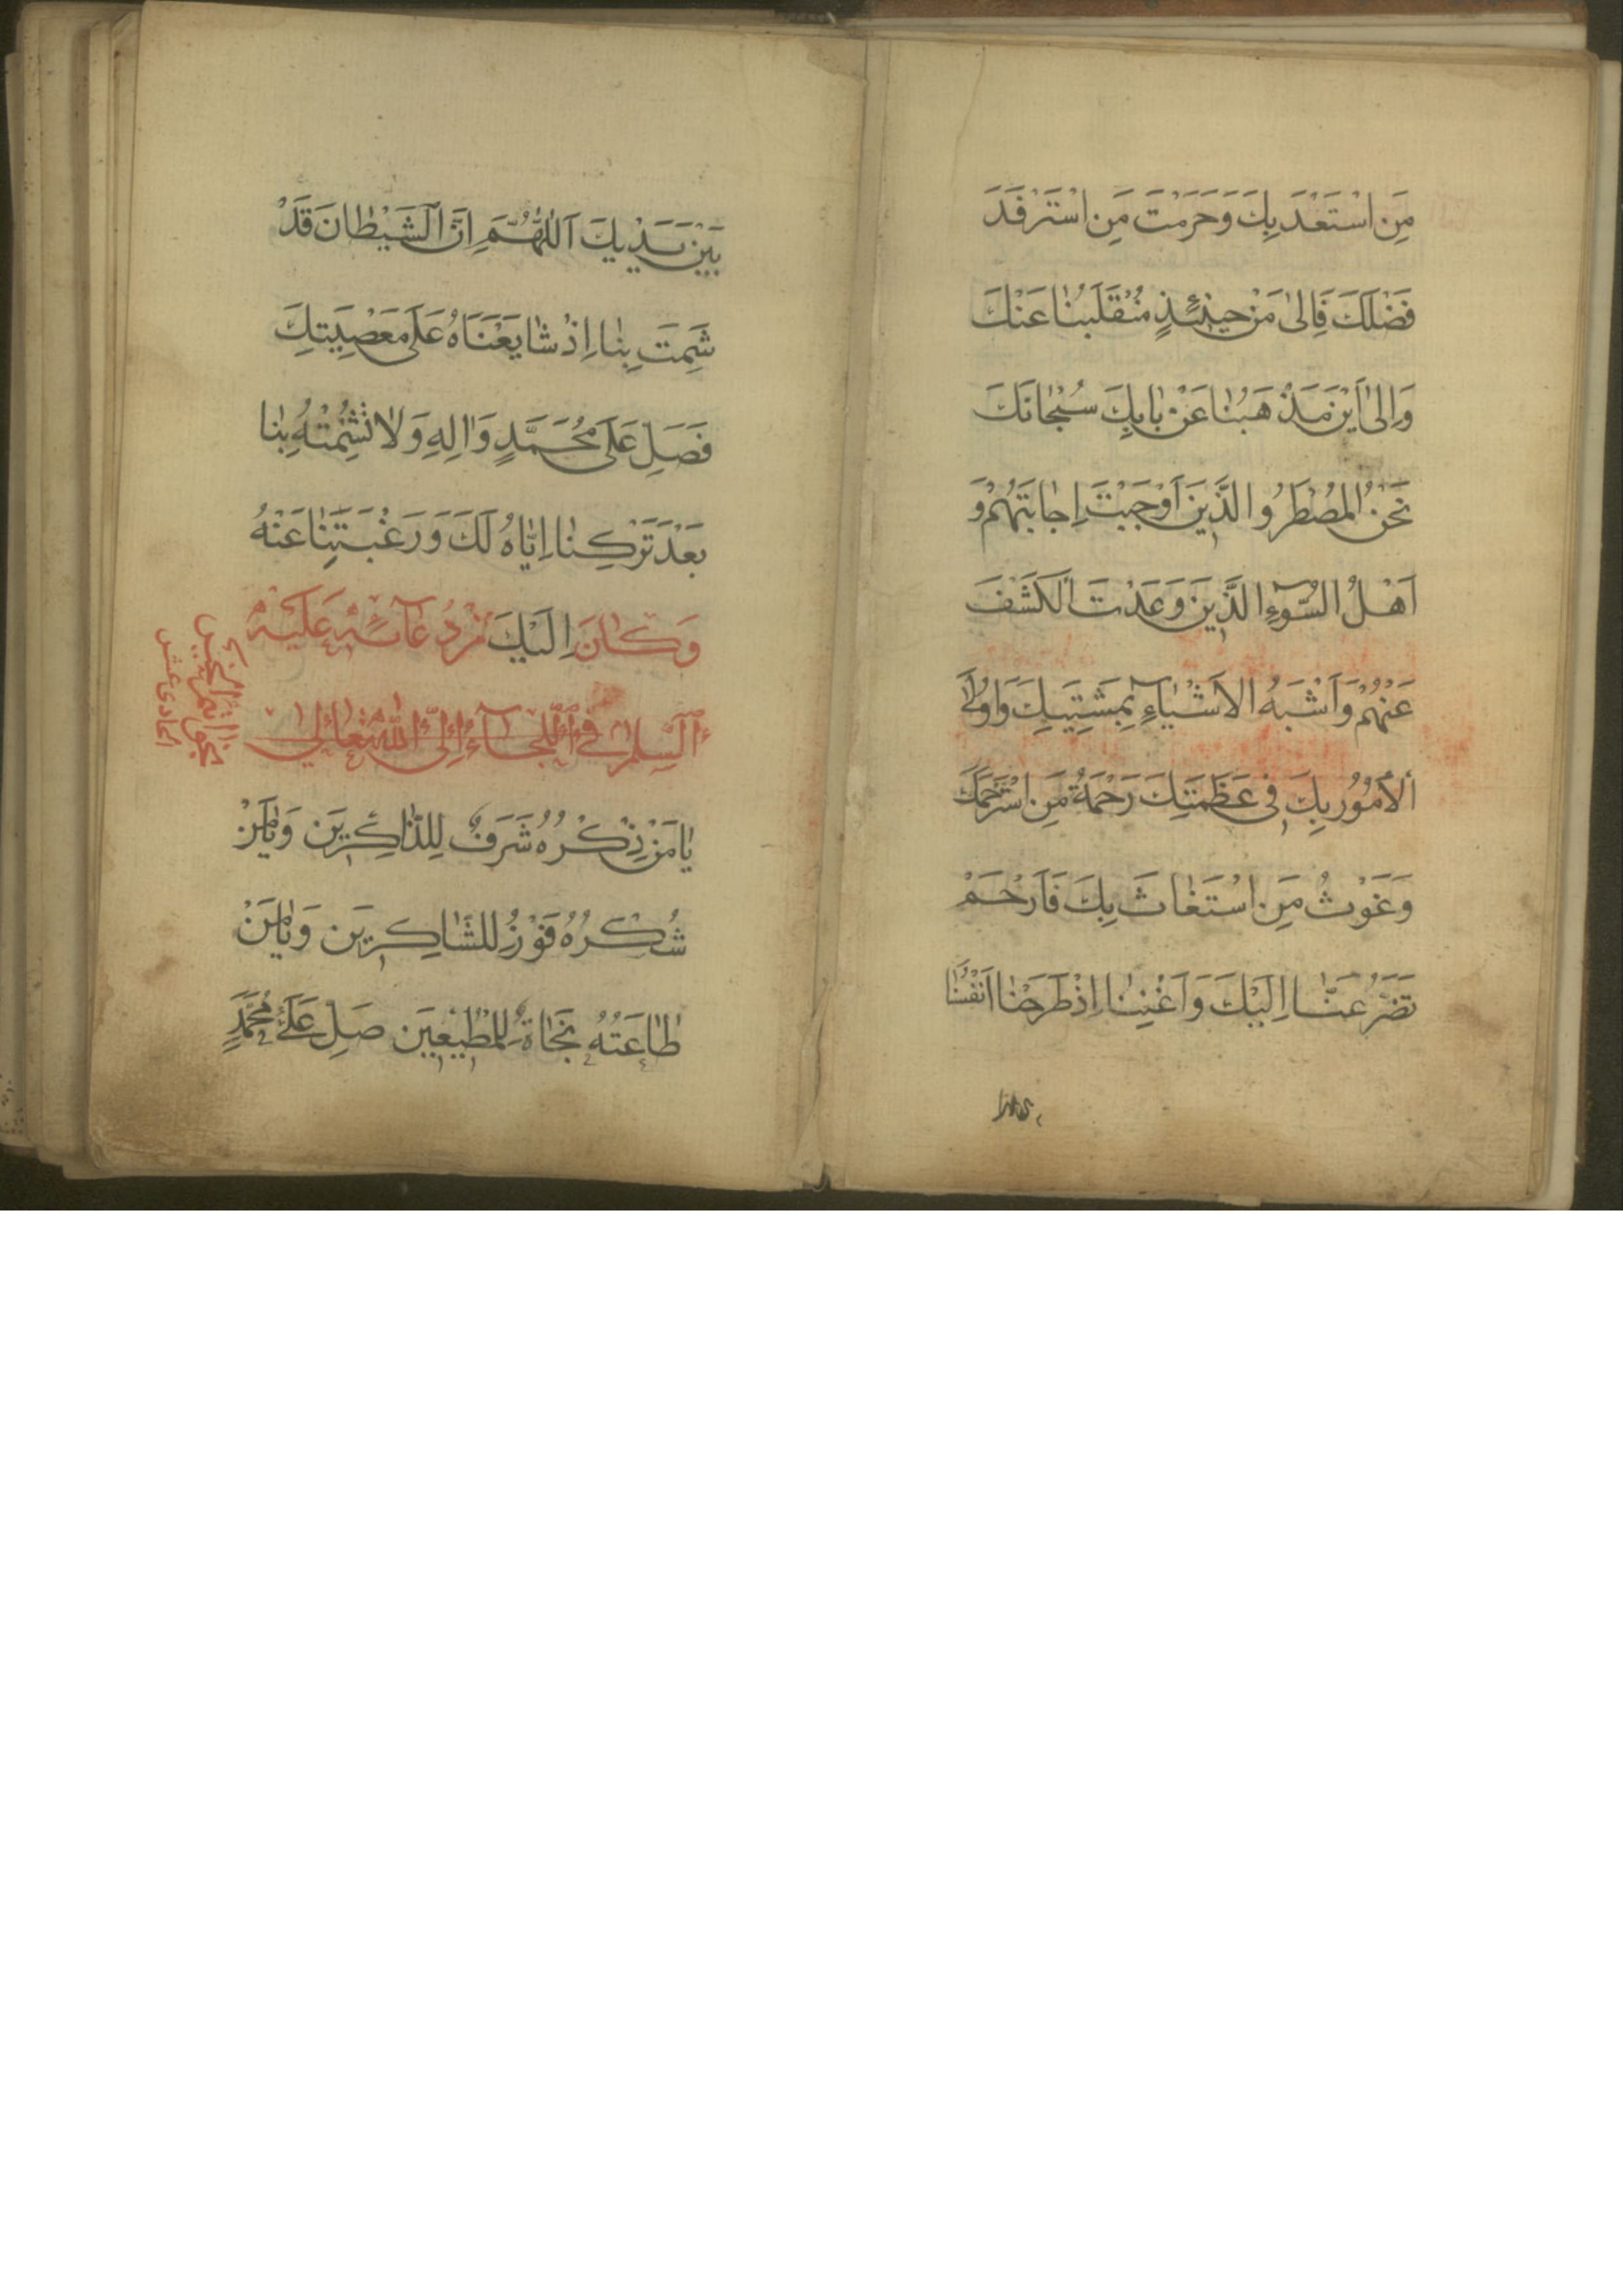 مَنِ اسْتَعْدَ بِكَ وَحَرَمْتَ مَنِ اسْتَرْفَدَ
فَضْلَكَ فَاِلىٰ مَنْ حينَئِذٍ مُنْقَلَبُنٰا عَنْكَ
وَاِلىٰ اَيْنَ مَذْهَبُنٰا عَنْ بٰابِكَ سُبْحٰانَكَ
نَحْنُ الْمُضْطَرُّوالَّذينَ اَوْجَبْتَ اِجٰابَتَهُمْ وَ
اَهْلُ السُّوۤءِ الَّذينَ وَعَدْتَ الْكَشْفَ
عَنْهُمْ وَاَشْبَهُ الْاَشْيٰاۤءِ بِمَشِيَّتِكَ وَاَوْلَى
الْاُمُوُرِ بِكَ فى عَظَمَتِكَ رَحْمَةُ مَنِ اسْتَرْحَمَكَ
وَغَوْثُ مَنِ اسْتَغٰاثَ بِكَ فَارْحَمْ
تَضَرُّعَنٰا اِلَيْكَ وَاَغْنِنٰا اِذْ طَرَحْنٰا اَنْفُسَنٰا
بَيْنَ يَدَيْكَ اَللّٰهُمَّ اِنَّ الشَّيْطٰانَ قَدْ
شَمِتَ بِنٰا اِذْ شٰايَعْنَاهُ عَلىٰ مَعْصِيَتِكَ
فَصَلِّ عَلىٰ مُحَمَّدٍ وَاٰلِهِ وَلاٰ تُشْمِتْهُ بِنٰا
بَعْدَ تَرْكِنٰا اِيّٰاهُ لَكَ وَرَغْبَتِنٰا عَنْهُ
اِلَيْكَ وَكٰانَ مِنْ دُعٰاۤئِهِ عَلَيْهِ
السَّلٰامُ فِي اللَّجَاۤءِ اِلَى اللّٰهِ تَعٰالىٰ
يٰا مَنْ ذِكْرُهُ شَرَفٌ لِلذّٰاكِرينَ وَيٰا مَنْ
شُكْرُهُ فَوْزٌ لِلشّٰاكِرينَ وَيٰا مَنْ
طٰاعَتُهُ نَجٰاةٌ لِلْمُطيعينَ صَلِّ عَلىٰ مُحَمَّدٍ